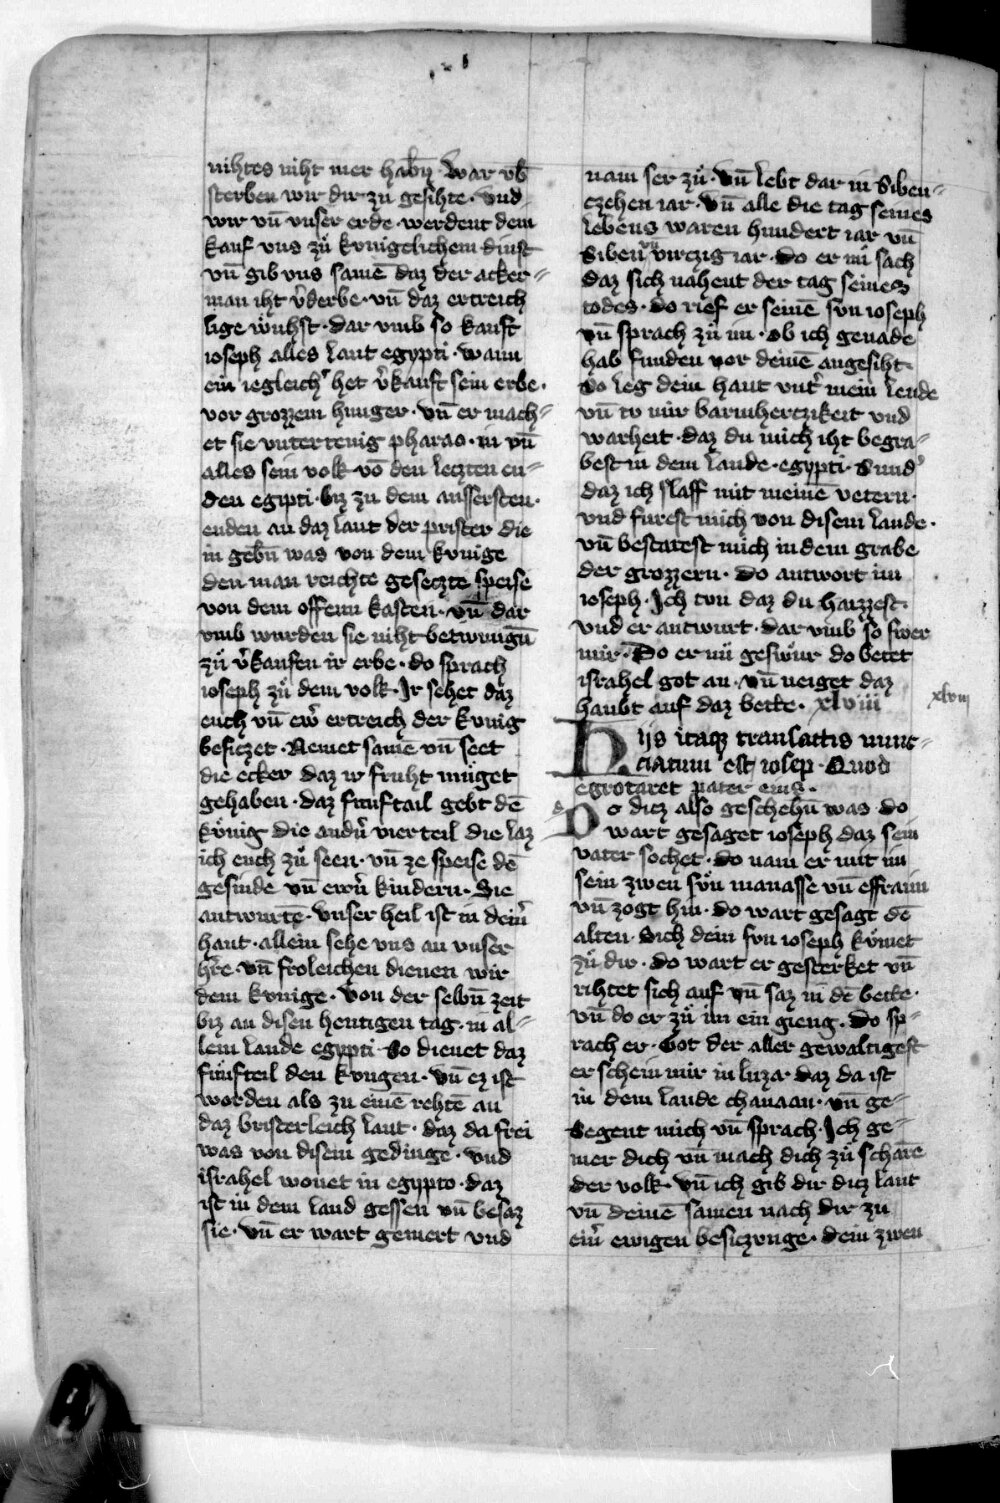 nihtes niht mer habn̄ · War vb̄
sterben wir dir zu gesihte · vnd
wir vn̄ vnser erde · werdent dem
kauf vns zů kvnigelichem dinst
vn̄ gib vns samē daz der acker⸗
man iht v̓derbe · vn̄ daz ertreich
lige wůhst · dar vmb so kauft
ioseph alles lant egypti · wann
ein iegleich᾽ het v̓kauft sein erbe ·
vor grozzem hunger · vn̄ er mach⸗
et sie vntertenig pharao · in vn̄
alles sein volk vō den letzten en⸗
den egipti · biz zu dem aussersten ·
enden an daz lant der prister die
in gebn̄ was von dem kvnige
den man reichte gesetzte speise
von dem offenn kasten · vn̄ dar
vmb wurden sie niht betwungn̄
zů v̓kaufen ir erbe · do sprach
ioseph zů dem volk · Ir sehet daz
euch vn̄ ew̓ ertreich der kvnig
besitzet · Nemet samē vn̄ seet
die ecker daz ir fruht můget
gehaben · daz funftail gebt dē
kŏnig die andn̓ vierteil die laz
ich euch zů seen · vn̄ ze speise dē
gesinde vn̄ ewn̓ kindern · Sie
antwurtē · vnser heil ist in dein̓
hant · allein sehe vns an vnser
hr̄e · vn̄ froleichen dienen wir
dem kvnige · Von der selbn̄ zeit
biz an disen heutigen tag · in al⸗
lem lande egypti · So dienet daz
fůnfteil den kvngen · vn̄ ez ist
worden als zu einē rehtē an
daz bristerleich lant · daz da frei
was von disem gedinge · vnd
israhel wonet in egypto · daz
ist in dem land gessen vn̄ besaz
sie · vn̄ er wart gemert vnd
nam ser zů · vn̄ lebt dar in siben⸗
czehen iar · vn̄ alle die tag seines
lebens waren hundert iar vn̄
siben vn̄ virczig iar · do er nu sach
daz sich nahent der tag seines
todes · do rief er seinē svn ioseph
vn̄ sprach zů im · ob ich genade
hab funden vor deinē angesiht ·
So leg dein hant vnt̓ mein lende
vn̄ tv mir barmhertzikeit vnd
warheit · daz du mich iht begra⸗
best in dem lande · egypti · Sund᾽
daz ich slaff mit meinē vetern ·
vnd furest mich von disem lande ·
vn̄ bestatest mich in dem grabe
der grozzern · do antwort im
ioseph · Ich tvn daz du haizzest ·
vnd er antwurt · dar vmb so swer
mir · Do er nů geswůr do betet
israhel got an · vn̄ neiget daz
haubt auf daz bette · xlviii
xlviii
Hiis itaq̨ translattis nunt⸗
ciatum est iosep · Quod
egrotaret pater eius ·
Do ditz also geschehn̄ was do
wart gesaget ioseph daz sein
vater sochet · do nam er mit im
sein zwen sůn manasse vn̄ effraim
vn̄ zogt hin · do wart gesagt dē
alten · Sich dein svn ioseph kůmet
zů dir · do wart er gesterket vn̄
rihtet sich auf vn̄ saz in dē bette ·
vn̄ do er zů im ein gieng · Do sp⸗
rach er · Got der aller gewaltigest
er schein mir in luza · daz da ist
in dem lande chanaan · vn̄ ge⸗
segent mich vn̄ sprach · Ich ge⸗
mer dich vn̄ mach dich zů scharē
der volk · vn̄ ich gib dir ditz lant
vn̄ deinē samen nach dir zu
ein̓ ewigen besiczvnge · dein zwen